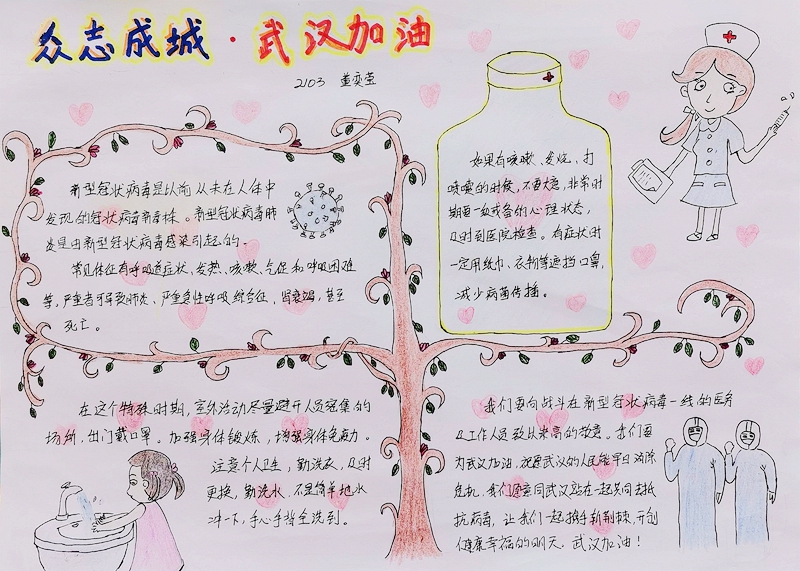 众志成城·武汉加油
2103 董奕莹
新型冠状病毒是以前从未在人体中
发现的冠状病毒新毒株。新型冠状病毒肺
炎是由新型冠状病毒感染引起的。
常见体征有呼吸道症状、发热、咳嗽、气促和呼吸困难
等，严重者可导致肺炎、严重急性呼吸综合征，肾衰竭，甚至
死亡。
如果有咳嗽、发烧、打
喷嚏的时候，不要大意，非常时
期要一级戒备的心理状态，
及时到医院检查。有症状时
一定用纸巾、衣物等遮挡口鼻，
减少病菌传播。
在这个特殊时期，室外活动尽量避开人员密集的
场所，出门戴口罩。加强身体锻炼，增强身体免疫力。
注意个人卫生，勤洗衣，及时
更换，勤洗水，不是简单地水
冲一下，手心手背全洗到。
我们要向战斗在新型冠状病毒一线的医务
及工作人员致以崇高的敬意。我们要
为武汉加油，祝愿武汉的人民能早日消除
危机，我们愿意同武汉站在一起共同去抵
抗病毒，让我们一起携手斩荆棘，开创
健康幸福的明天，武汉加油！